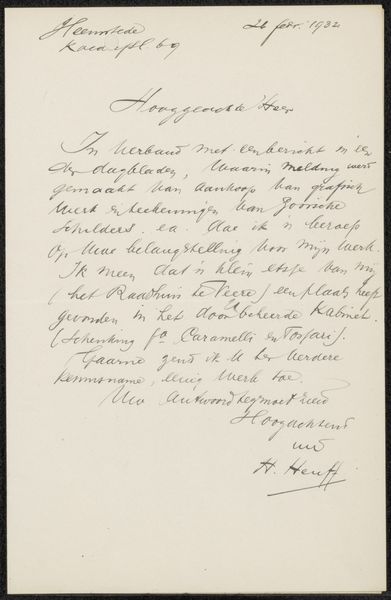 Heemstede
69
26 febr. 1932
Hooggeachte Heer
In verband met een bericht in een
der dagbladen, waarin melding werd
gemaakt van aankoop van grafisch
werk en teekeningen van Gooische
schilders. e.a. doe ik 'n beroep
op Uwe belangstelling voor mijn werk
Ik meen dat 'n klein etsje van mij
(het Raadhuis te Veere) een plaats heeft
gevonden in het door U beheerde Kabinet.
(Schenking fa Caramelli en Tessari).
Gaarne zend ik U ter verdere
kennisname, eenig werk toe.
Uw antwoord tegemoet ziend
Hoogachtend
H. Heuff